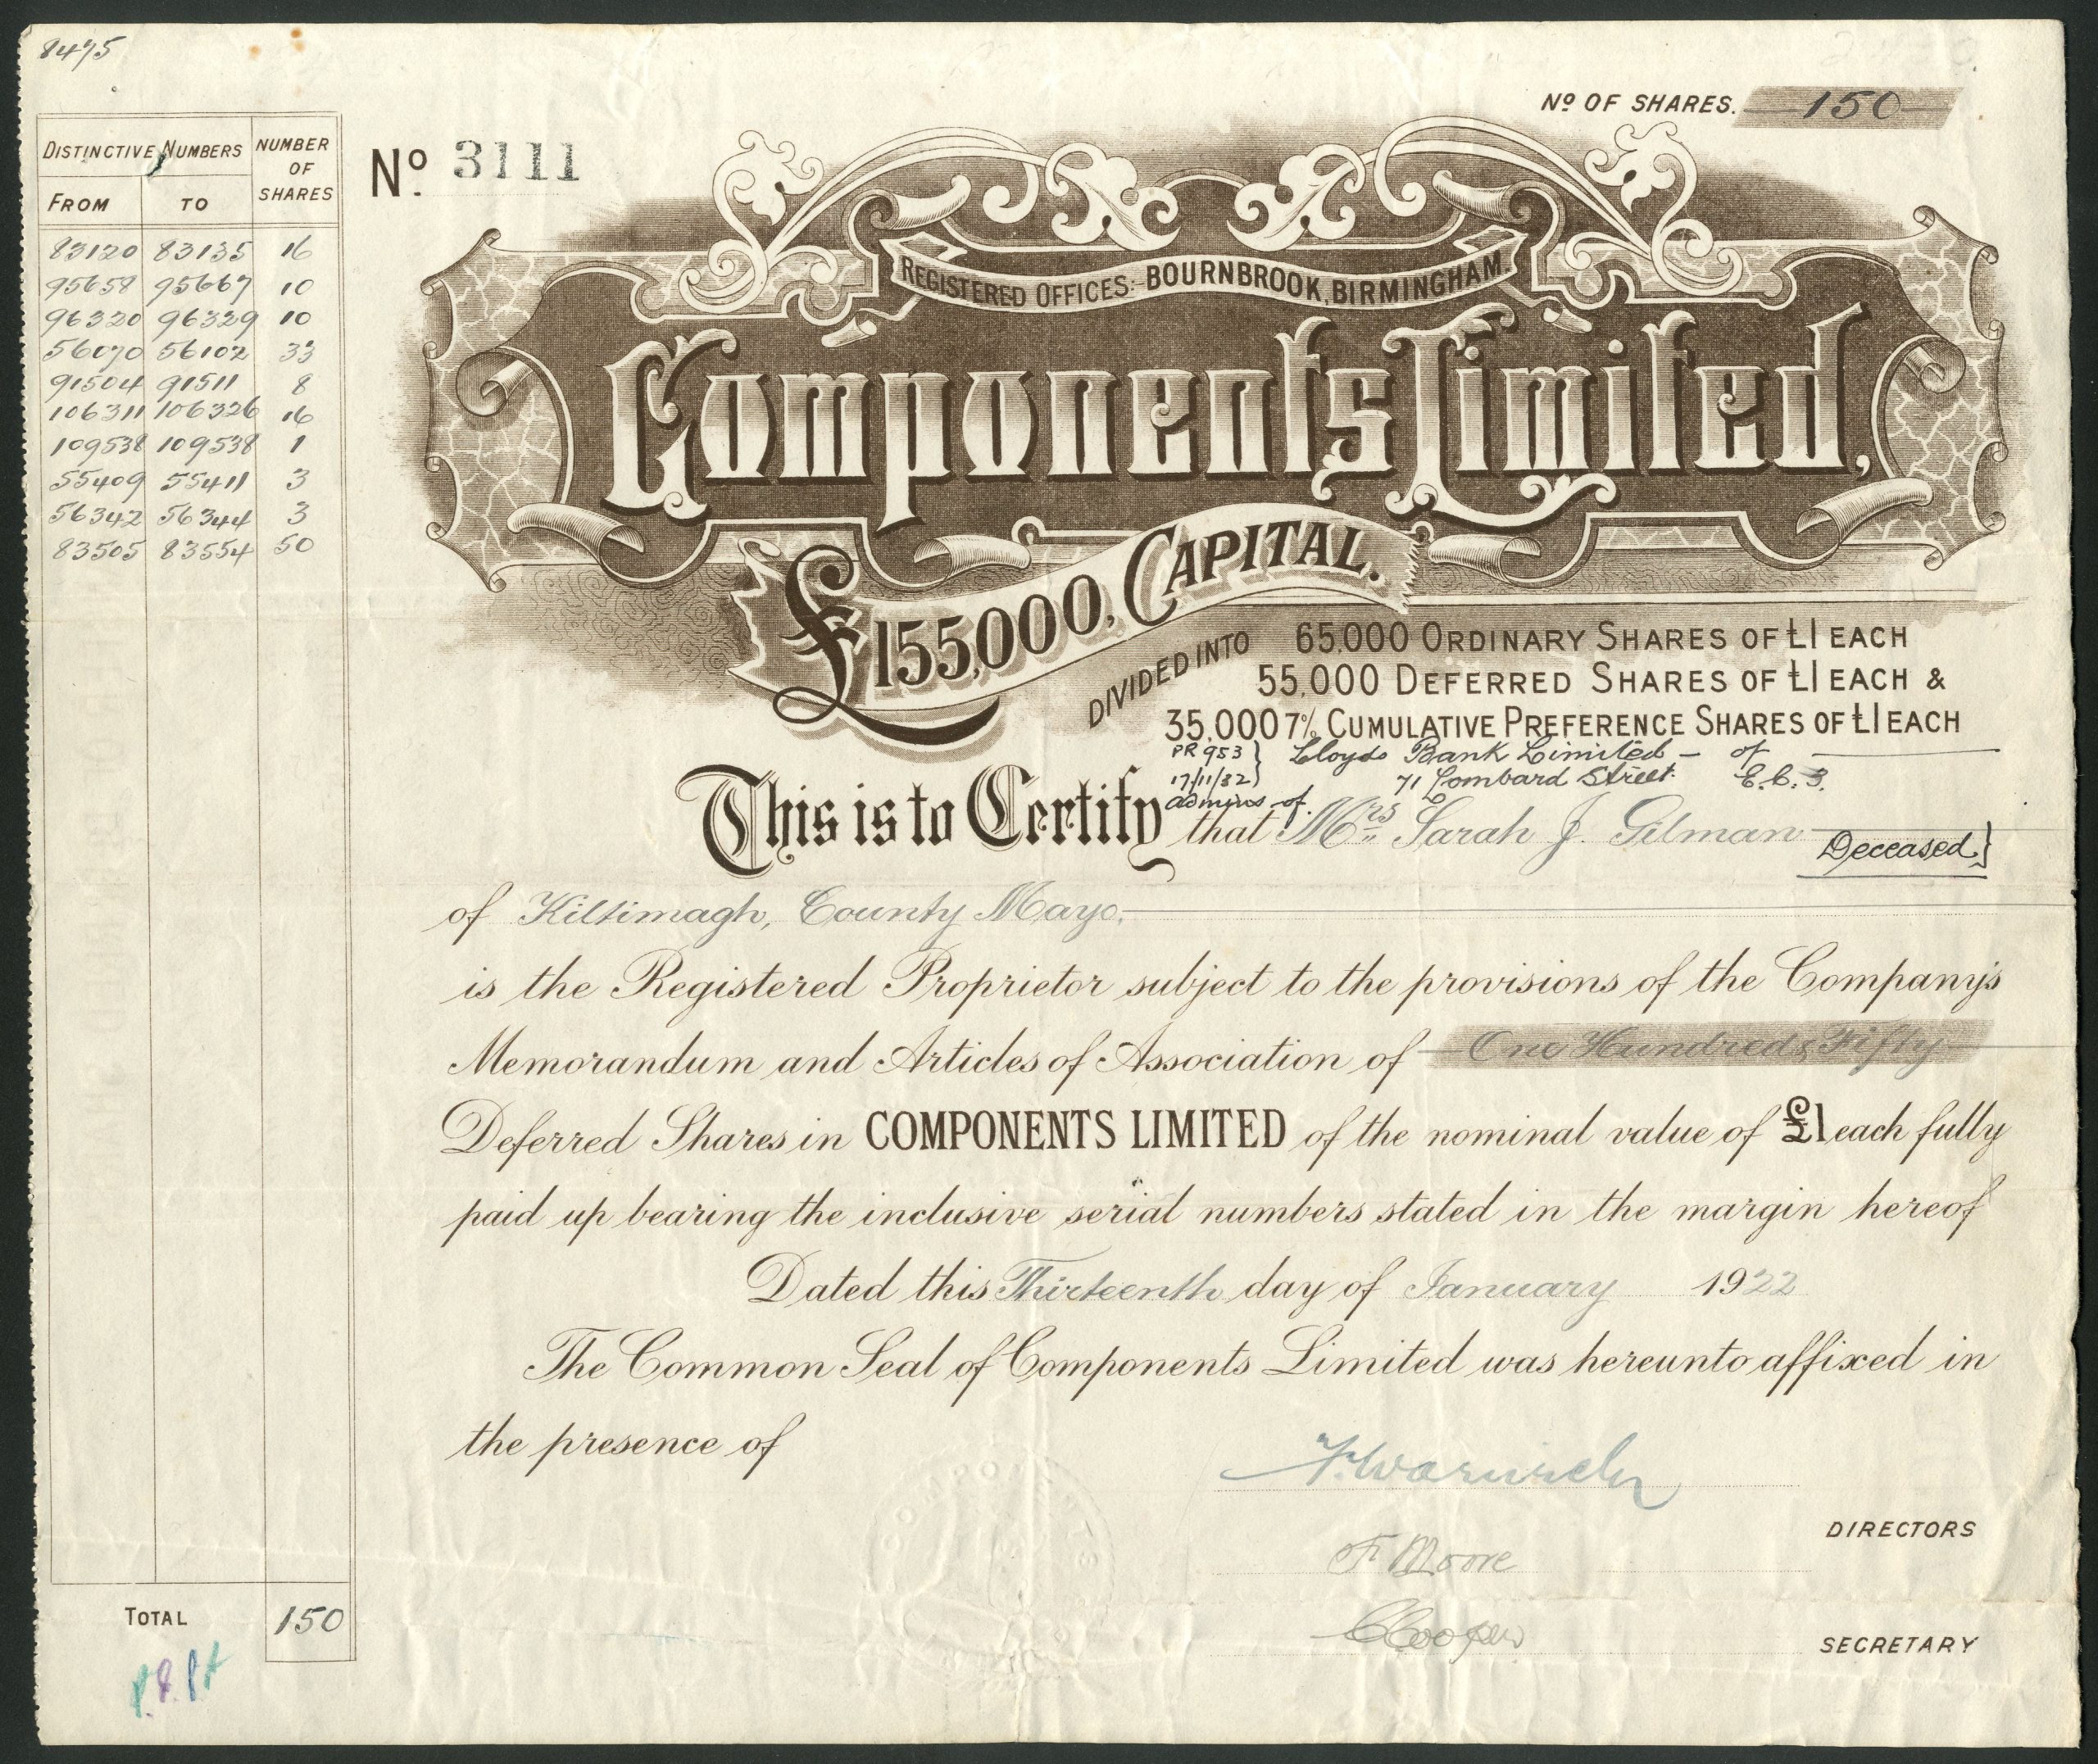 8475
No OF SHARES. 150
No. 3111
DISTINCTIVE NUMBERS NUMBER OF SHARES
FROM TO
83120 83135 16
95658 95667 10
96320 96329 10
56070 56102 33
91504 91511 8
106311 106326 16
109538 109538 1
55409 55411 3
56342 56344 3
83505 83554 50
TOTAL 150
REGISTERED OFFICES:- BOURNBROOK, BIRMINGHAM.
Components Limited,
£155,000, CAPITAL.
DIVIDED INTO 65,000 ORDINARY SHARES OF £1 EACH
55,000 DEFERRED SHARES OF £1 EACH &
35,000 7% CUMULATIVE PREFERENCE SHARES OF £1 EACH
PR 953 } Lloyds Bank Limited - of
17/11/32 } 71 Lombard Street. E.C.3.
admins of.
This is to Certify that Mrs Sarah J. Gilman Deceased }
of Kiltimagh, County Mayo.
is the Registered Proprietor subject to the provisions of the Company's
Memorandum and Articles of Association of One Hundred & Fifty
Deferred Shares in COMPONENTS LIMITED of the nominal value of £1 each fully
paid up bearing the inclusive serial numbers stated in the margin hereof
Dated this Thirteenth day of January 1922
The Common Seal of Components Limited was hereunto affixed in
the presence of
F. Warwick
DIRECTORS
F Moore
C Cooper
SECRETARY